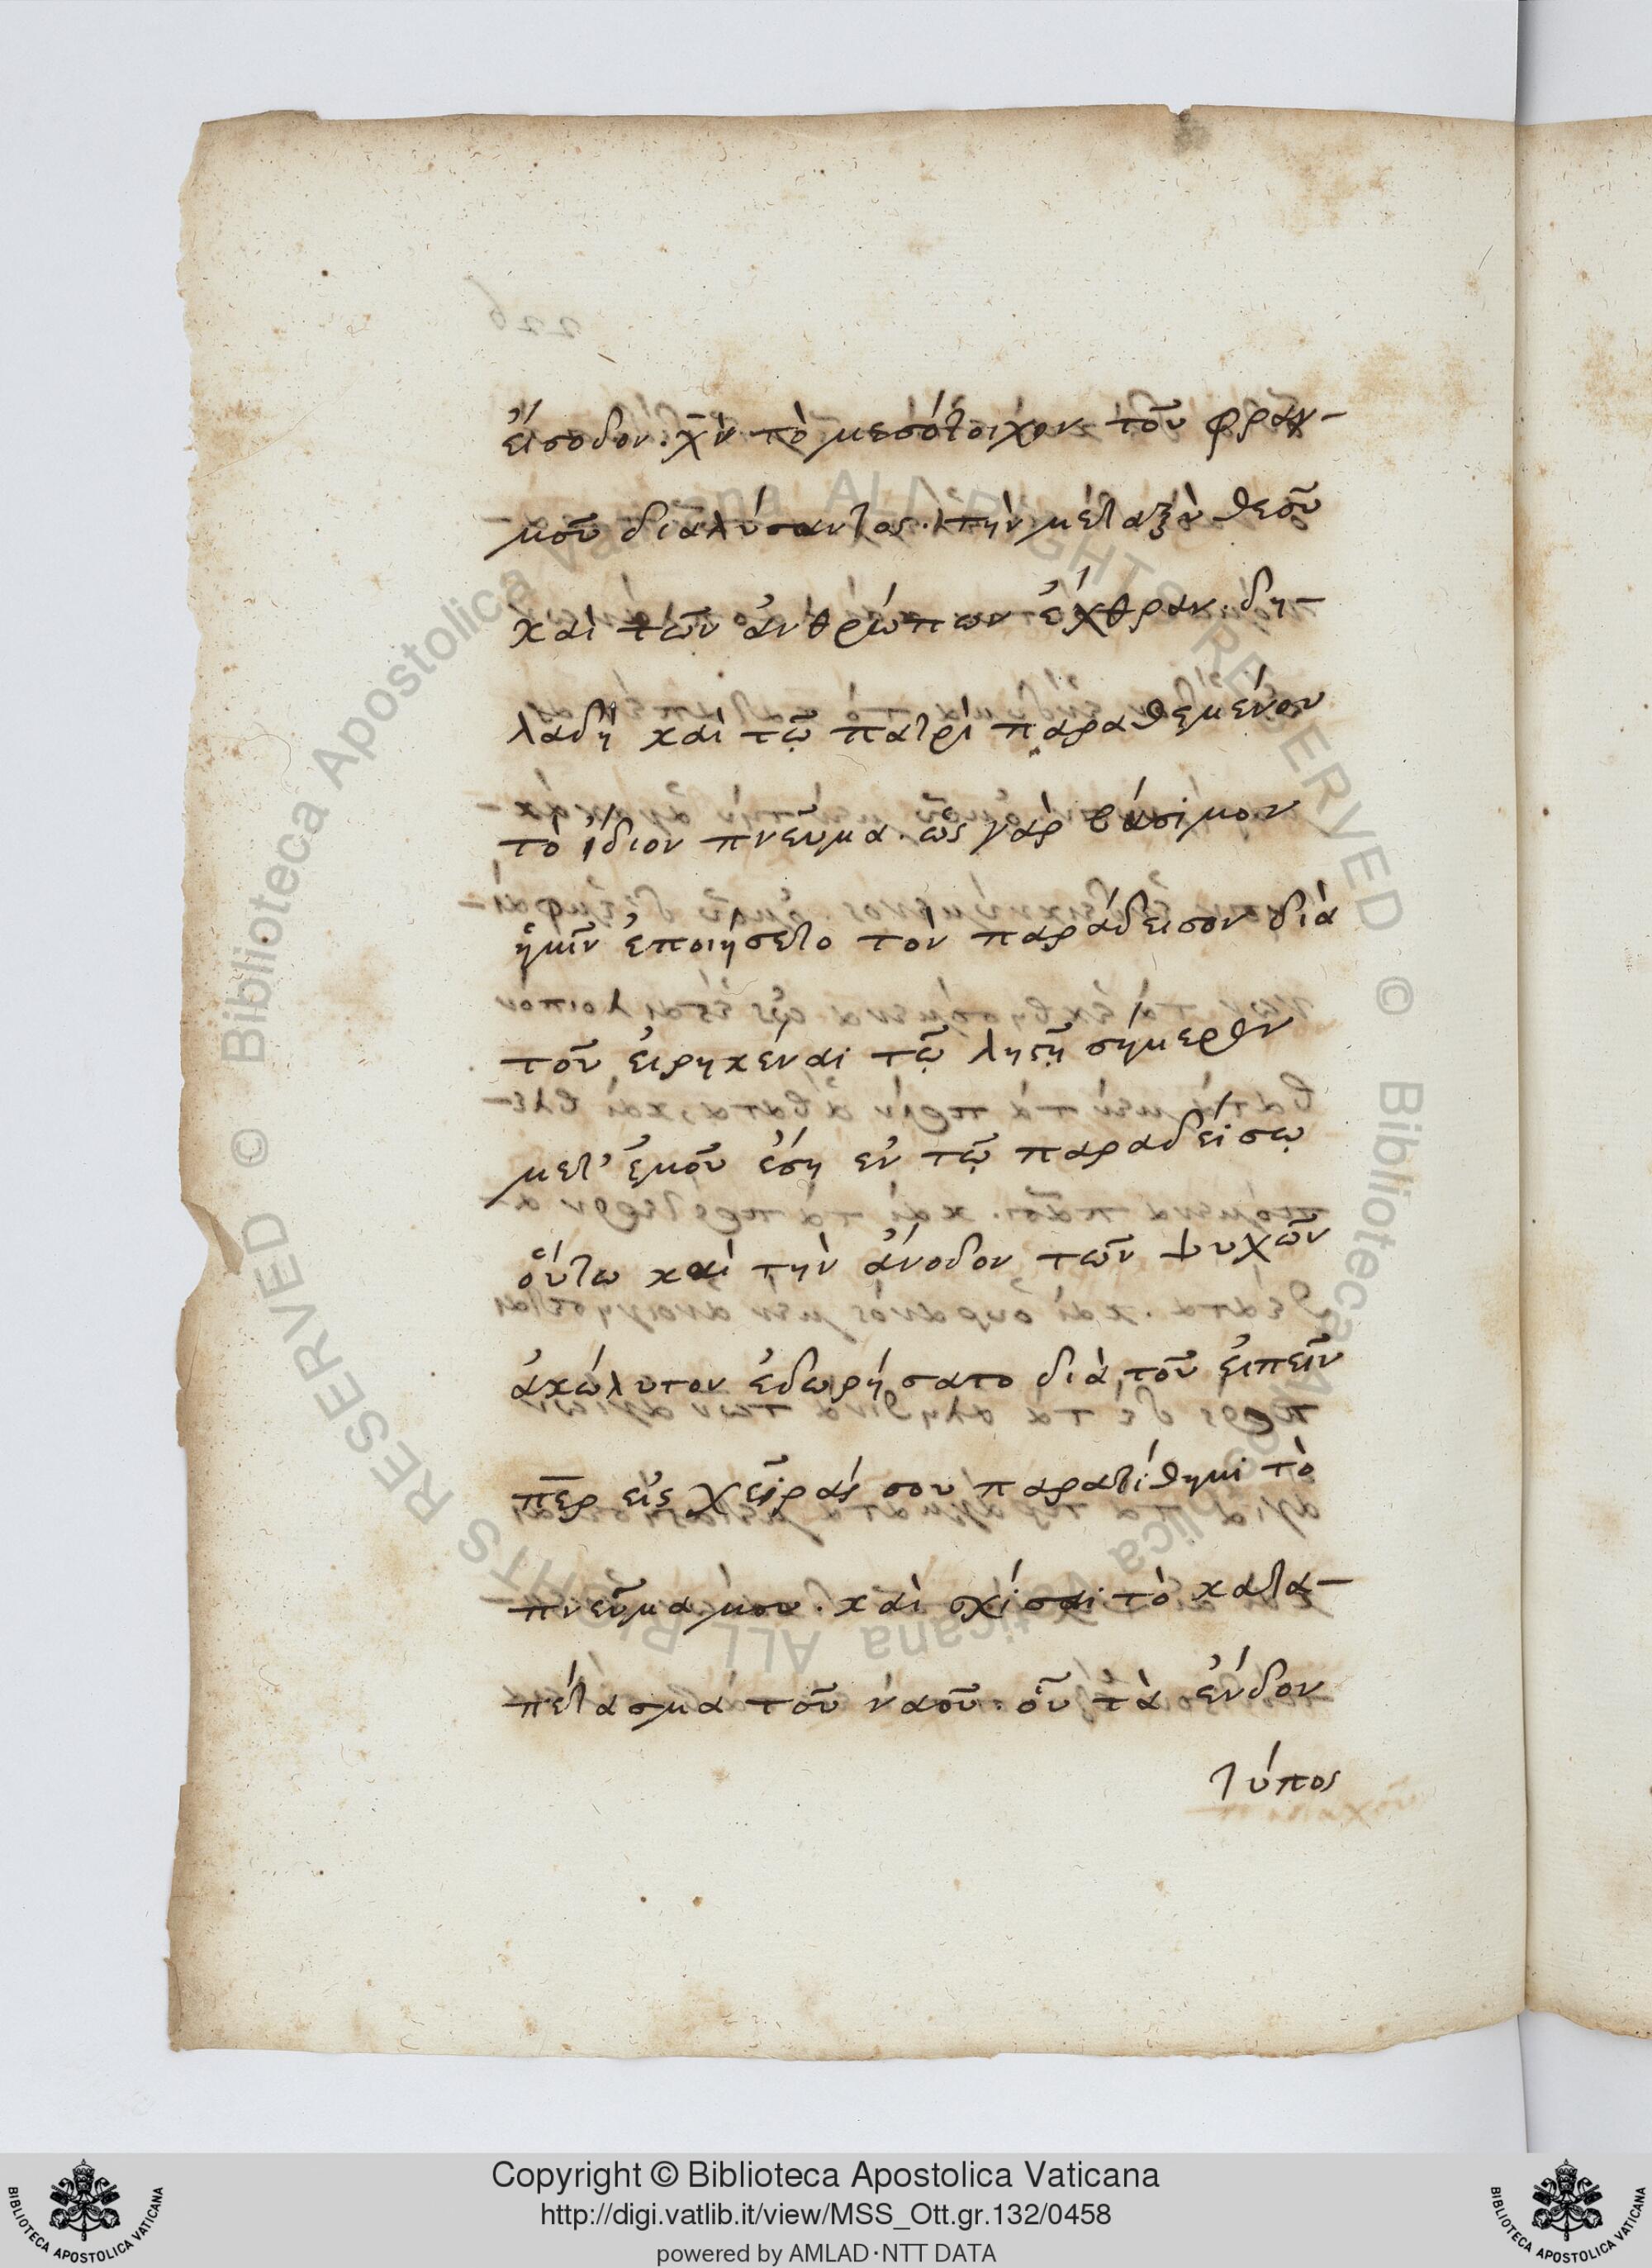 εἴσοδον. χ̅υ̅ τὸ μεσότοιχον τοῦ φραγ-
μοῦ διαλύσαντος. τὴν μεταξὺ θεοῦ
καὶ τῶν ἀνθρώπων ἔχθραν. δη-
λαδὴ καὶ τῷ πατρὶ παραθεμένου
τὸ ἴδιον πνεῦμα. ὡς γὰρ βάσιμον
ἡμῖν ἐποιήσετο τὸν παράδεισον διὰ
τοῦ εἰρηκέναι τῷ λῃστῇ σήμερον
μετ' ἐμοῦ ἔσῃ ἐν τῷ παραδείσῳ
οὕτω καὶ τὴν ἄνοδον τῶν ψυχῶν
ἀκώλυτον ἐδωρήσατο διὰ τοῦ εἰπεῖν
π̅ε̅ρ εἰς χεῖράς σου παρατίθημι τὸ
πνεῦμα μου. καὶ σχίσαι τὸ κατα-
πέτασμα τοῦ ναοῦ. οὗ τὰ ἔνδον
τύπος
Copyright © Biblioteca Apostolica Vaticana
http://digi.vatlib.it/view/MSS_Ott.gr.132/0458
powered by AMLAD·NTT DATA
BIBLIOTECA APOSTOLICA VATICANA
BIBLIOTECA APOSTOLICA VATICANA
© Biblioteca Apostolica Vaticana ALL RIGHTS RESERVED
© Biblioteca Apostolica Vaticana ALL RIGHTS RESERVED